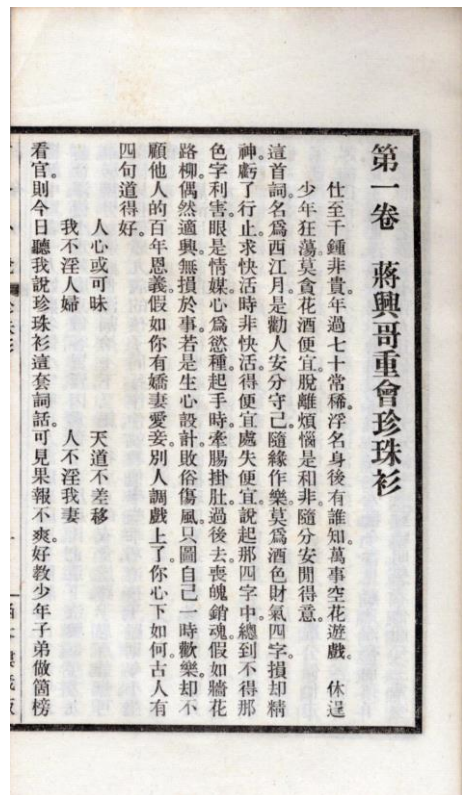 第一卷　蔣興哥重會珍珠衫
仕至千鍾非貴。年過七十常稀。浮名身後有誰知。萬事空花遊戲　休逞
少年狂蕩。莫貪花酒便宜。脫離煩惱是和非。隨分安閒得意。
這首詞。名爲西江月。是勸人安分守己。隨緣作樂。莫爲酒色財氣四字。損却精
神。虧了行止。求快活時非快活。得便宜處失便宜。說起那四字中。總到不得那
色字利害。眼是情媒。心爲慾種。起手時。牽腸掛肚。過後去。喪魄銷魂。假如牆花
路柳。偶然適興。無損於事。若是生心設計。敗俗傷風。只圖自己一時歡樂。却不
顧他人的百年恩義。假如你有嬌妻愛妾。別人調戲上了。你心下如何。古人有
四句道得好。
人心或可昧　　天道不差移
我不淫人婦　　人不淫我妻
看官。則今日聽我說珍珠衫這套詞話。可見果報不爽。好教少年子弟做箇榜